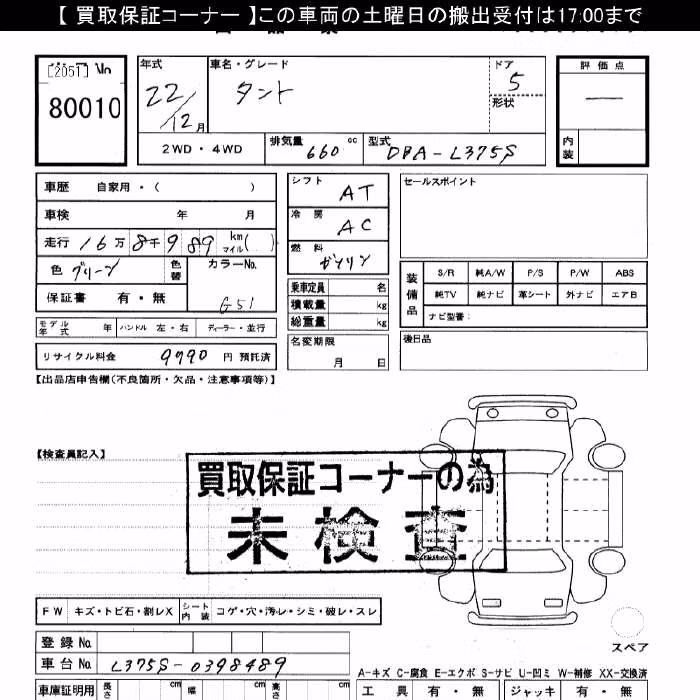 【 買取保証コーナー 】この車両の土曜日の搬出受付は17:00まで
[2051] No
80010
年式
22/12月
車名・グレード
タント
ドア
5
形状
評価点
―
内装
2WD ・ 4WD
排気量 660 cc
型式 DBA-L375S
車歴 自家用・( )
車検 年 月
走行 16万8千989 km マイル( )
色 グリーン
色替
カラーNo.
G51
保証書 有・無
モデル年式 年 ハンドル 左・右 ディーラー・並行
リサイクル料金 9790 円 預託済
シフト AT
冷房 AC
燃料 ガソリン
乗車定員 名
積載量 kg
総重量 kg
名変期限
月 日
セールスポイント
装備品
S/R 純A/W P/S P/W ABS
純TV 純ナビ 革シート 外ナビ エアB
ナビ型番:
後日品
【出品店申告欄(不良箇所・欠品・注意事項等)】
【検査員記入】
買取保証コーナーの為
未検査
FW キズ・トビ石・割レX シート内装 コゲ・穴・汚レ・シミ・破レ・スレ
スペア
登録No.
車台No. L375S-0398489
A-キズ C-腐食 E-エクボ S-サビ U-凹ミ W-補修 XX-交換済
車庫証明用 長さ cm 幅 cm 高さ cm
工具 有・無 ジャッキ 有・無